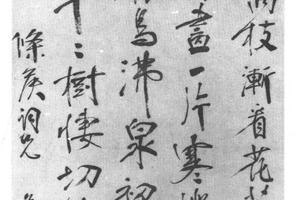 枝漸看花
畫一片寒
烏沸泉初
十二樹悽切
條侯詞兄